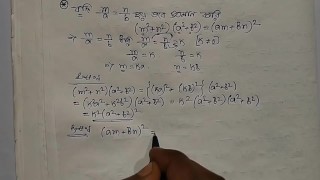 যদি m/a = n/b হয় তবে প্রমাণ করি
(m²+n²)(a²+b²) = (am+bn)²
⇒ m/a = n/b = K [K≠0]
m/a = K n/b = K
m = Ka n = Kb
(m²+n²)(a²+b²) = {(Ka)²+(Kb)²}(a²+b²)
= (K²a²+K²b²)(a²+b²) = K²(a²+b²)(a²+b²)
= K²(a²+b²)²
(am+bn)² =